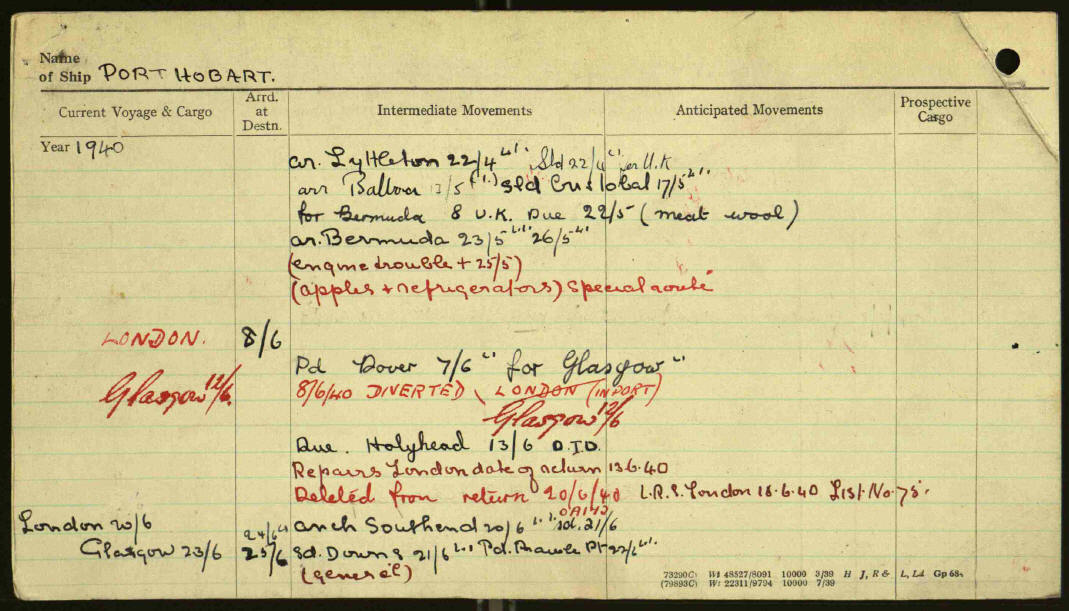 Name
of Ship PORT HOBART.
Current Voyage & Cargo
Arrd.
at
Destn.
Intermediate Movements
Anticipated Movements
Prospective
Cargo
Year 1940
ar. Lyttleton 22/4 Sld 22/4 for U.K
arr Balboa 13/5 Sld Cristobal 17/5
for Bermuda & U.K. Due 22/5 (meat wool)
ar. Bermuda 23/5 26/5
(engine trouble + 25/5)
(apples + refrigerators) Special route
LONDON. 8/6
Pd Dover 7/6 " for Glasgow "
Glasgow 12/6. 8/6/40 DIVERTED LONDON (IN PORT)
Glasgow 12/6
Due. Holyhead 13/6 D.T.D.
Repairs London date of return 13.6.40
Deleted from return 20/6/40 L.R.S. London 18.6.40 List. No. 75.
London 20/6 24/6 anch Southend 20/6 sd. 21/6
Glasgow 23/6 25/6 sd. Downs 21/6 Pd. Prawle Pt 22/6
(general)
73290C) Wt 48527/8091 10000 3/39 H J, R & L, Ld Gp 68
(79893C) Wt 22311/9794 10000 7/39